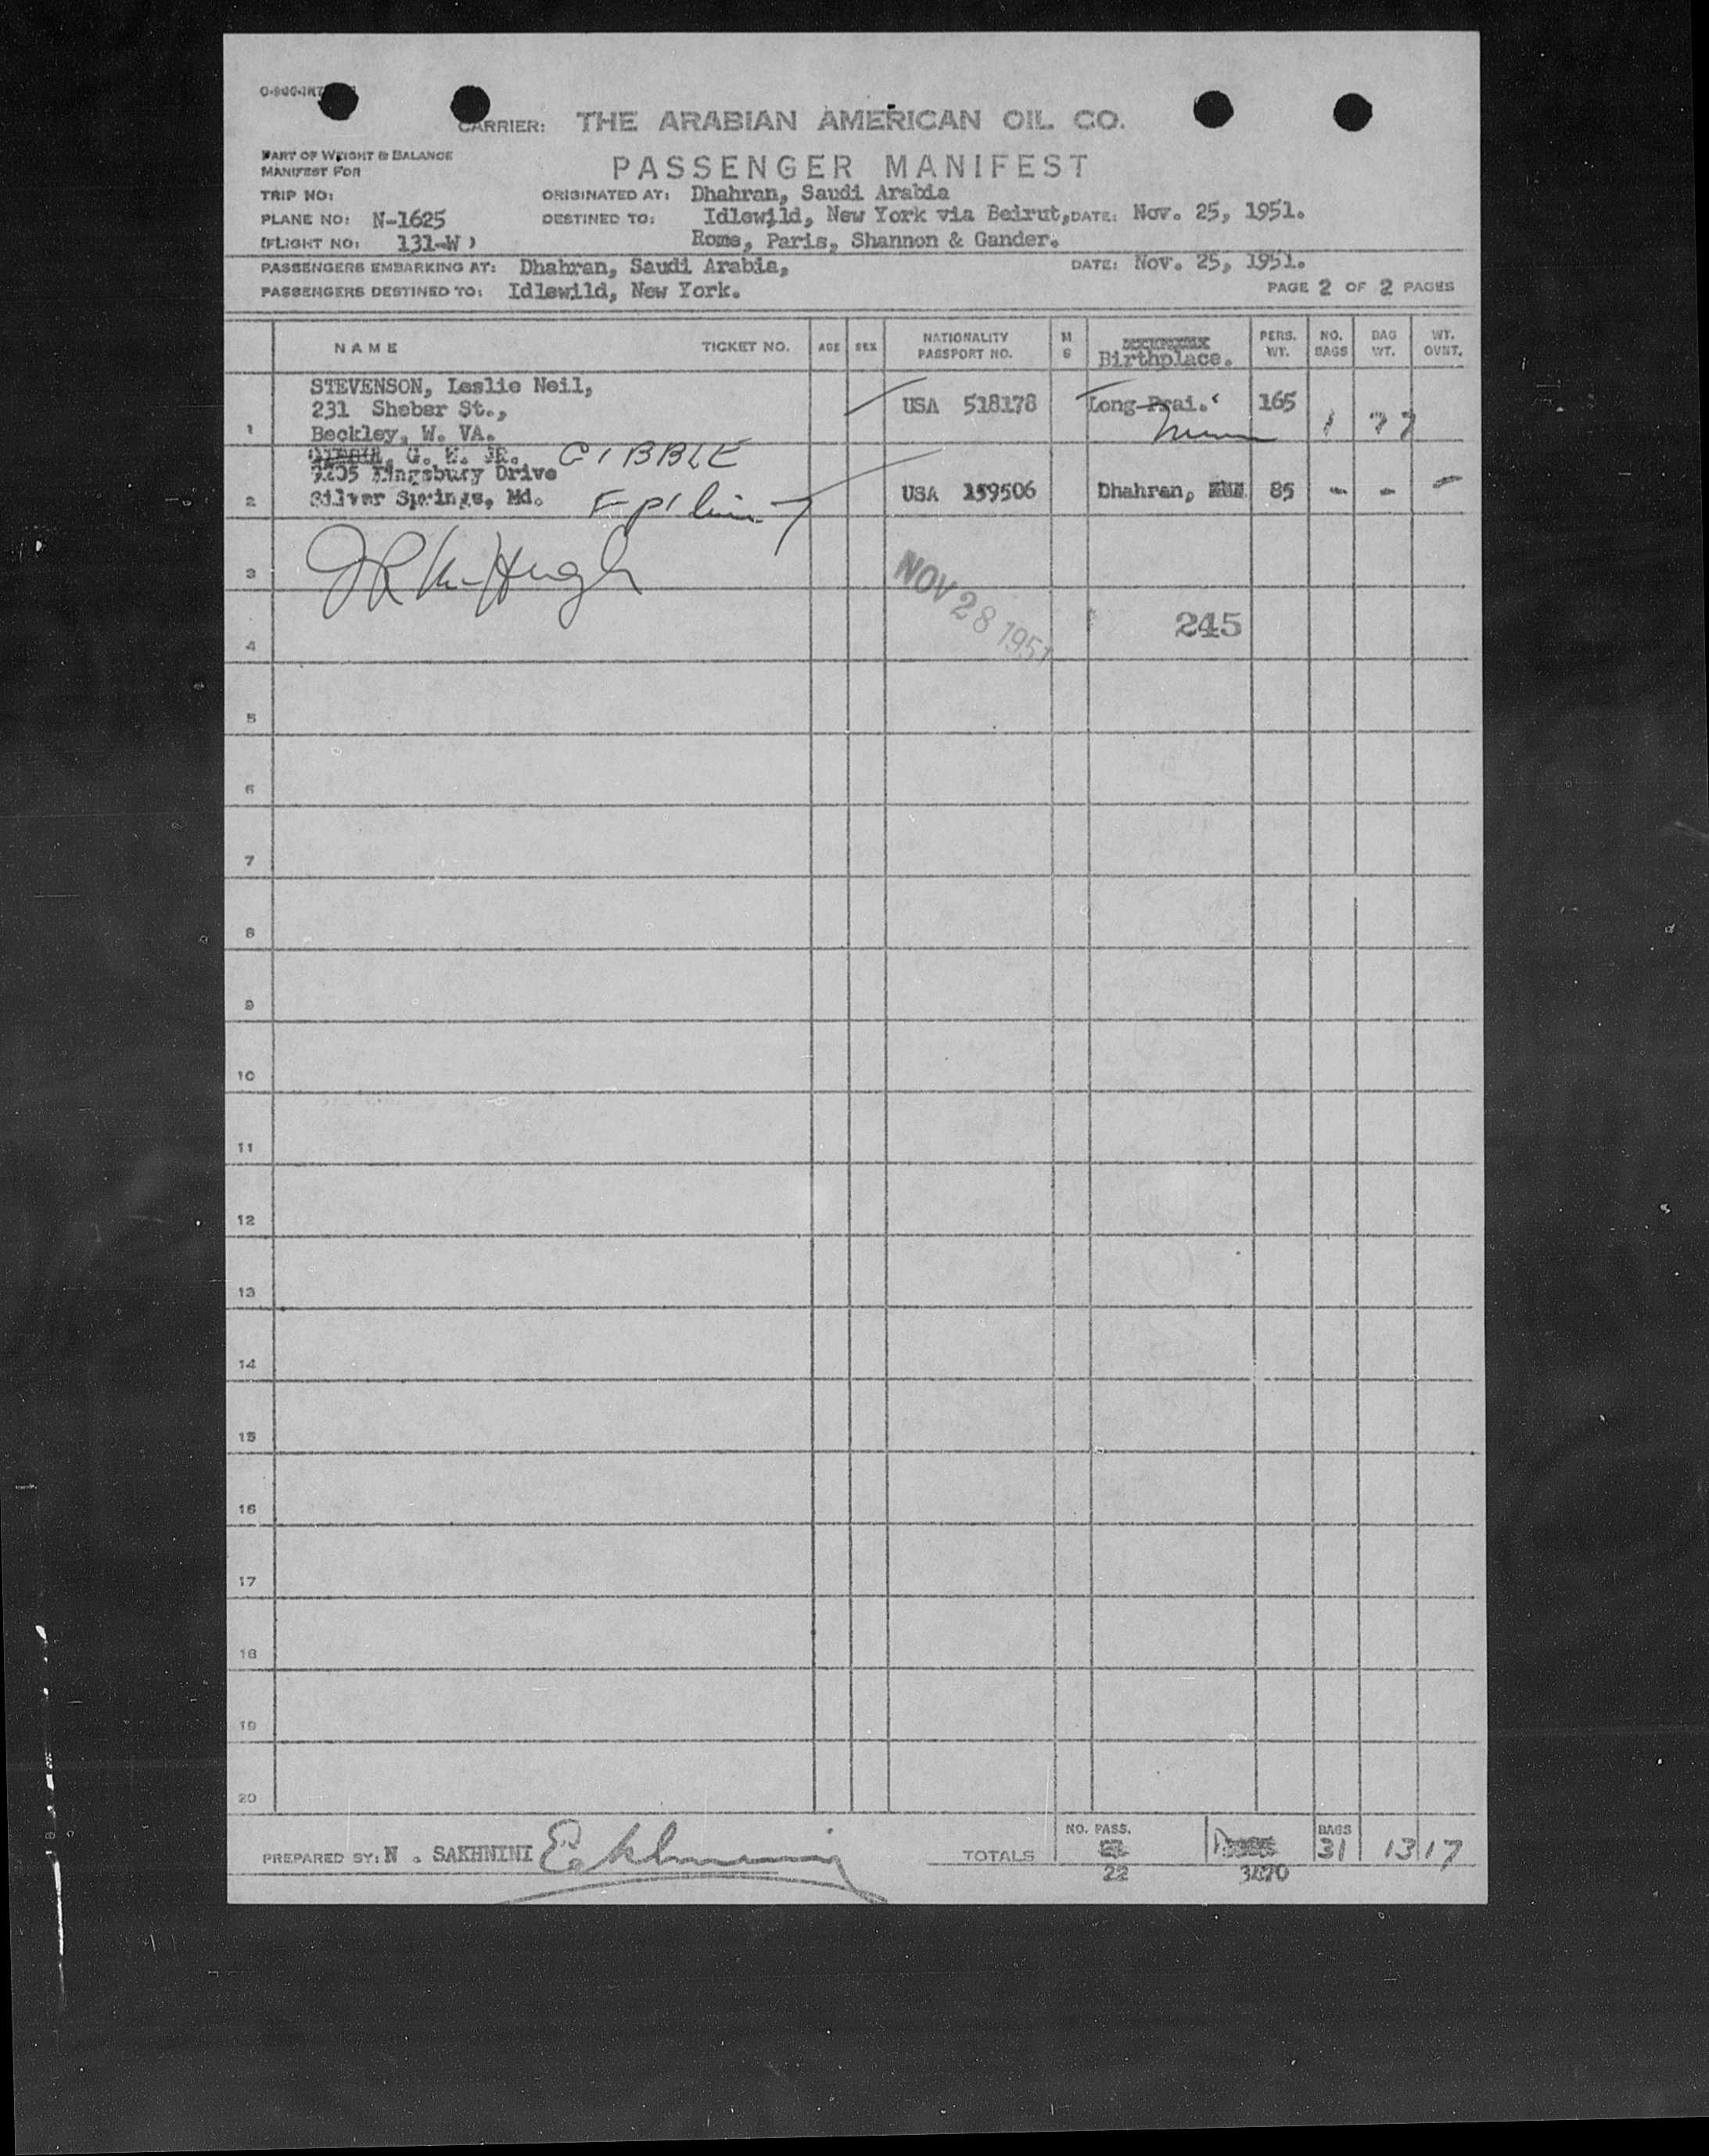 CARRIER: THE ARABIAN AMERICAN OIL CO.
PART OF WEIGHT & BALANCE
MANIFEST FOR
PASSENGER MANIFEST
TRIP NO:
ORIGINATED AT: Dhahran, Saudi Arabia
PLANE NO: N-1625
DESTINED TO: Idlewild, New York via Beirut, DATE: Nov. 25, 1951.
(FLIGHT NO: 131-W)
Rome, Paris, Shannon & Gander.
PASSENGERS EMBARKING AT: Dhahran, Saudi Arabia, DATE: Nov. 25, 1951.
PASSENGERS DESTINED TO: Idlewild, New York. PAGE 2 OF 2 PAGES
NAME TICKET NO. AGE SEX NATIONALITY PASSPORT NO. M S Birthplace. PERS. WT. NO. BAGS BAG WT. WT. OVNT.
STEVENSON, Leslie Neil,
231 Sheber St., USA 518178 Long Prai. 165
1 Beckley, W. VA. 1 77
G. H. JR. GIBBLE
Kingsbury Drive
2 Silver Springs, Md. USA 159506 Dhahran, 85 - - -
3
NOV 28 1951
245
4
5
6
7
8
9
10
11
12
13
14
15
16
17
18
19
20
PREPARED BY: N. SAKHNINI TOTALS NO. PASS. BAGS 31 1317
22 3470